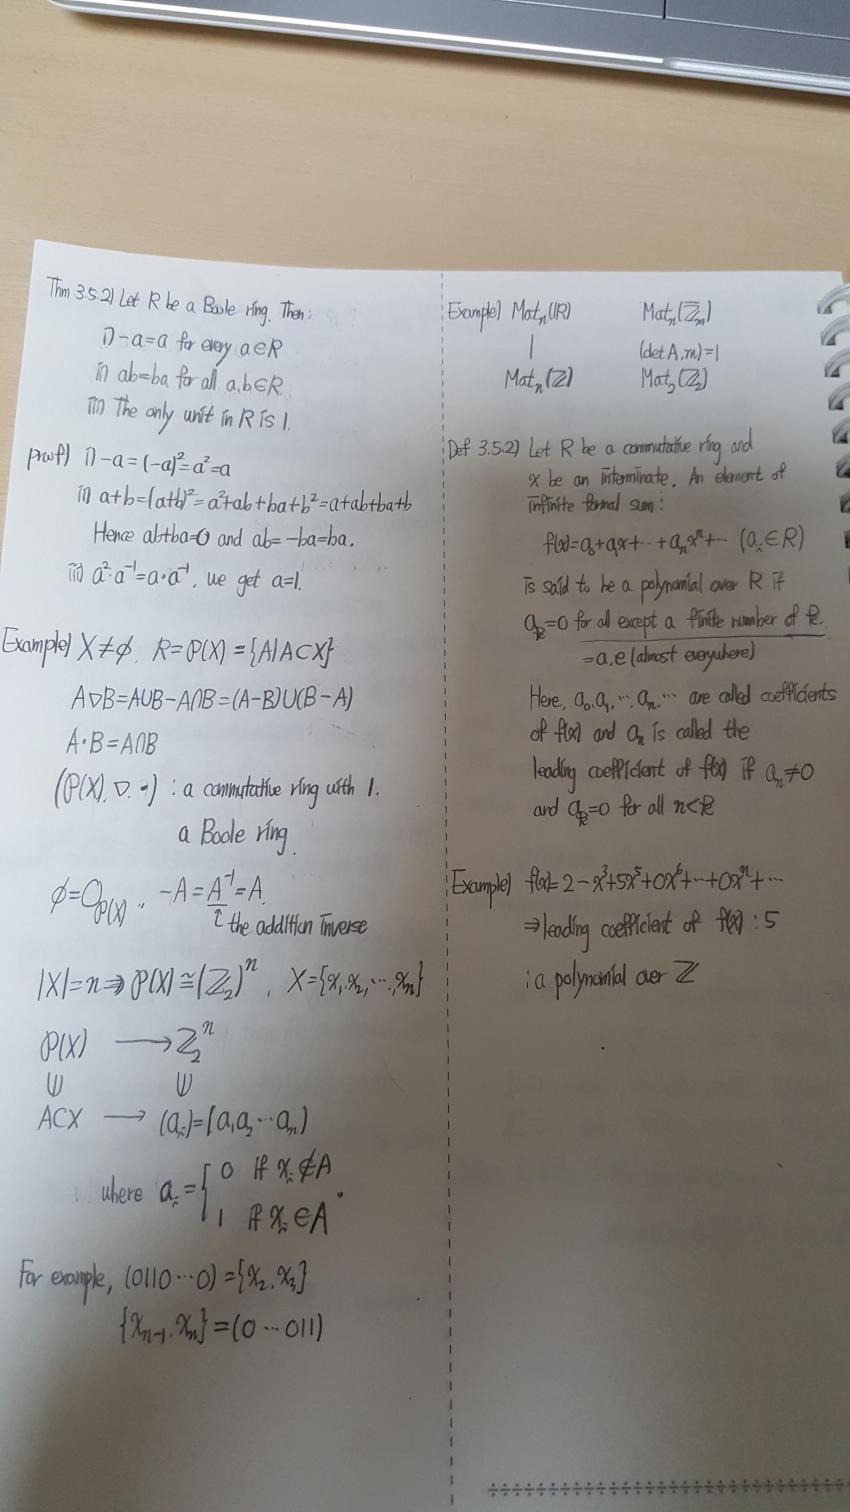 Thm 3.5.2) Let R be a Boole ring. Then:
i) -a=a for every a∈R
ii) ab=ba for all a,b∈R
iii) The only unit in R is 1.
proof) i) -a=(-a)²=a²=a
ii) a+b=(a+b)²=a²+ab+ba+b²=a+ab+ba+b
Hence ab+ba=0 and ab=-ba=ba.
iii) a²·a⁻¹=a·a⁻¹, we get a=1.
Example) X≠∅, R=℘(X)={A|A⊂X}
A▽B=A∪B-A∩B=(A-B)∪(B-A)
A·B=A∩B
(℘(X), ▽, ·) : a commutative ring with 1.
a Boole ring.
∅=O_℘(X), -A=A⁻¹=A
the addition inverse
|X|=n⇒℘(X)≅(ℤ₂)ⁿ, X={x₁,x₂,…,xₙ}
℘(X) ⟶ ℤ₂ⁿ
A⊂X ⟶ (aᵢ)=(a₁a₂⋯aₙ)
where aᵢ={ 0 if xᵢ∉A
1 if xᵢ∈A
For example, (0110⋯0)={x₂,x₃}
{xₙ₋₁,xₙ}=(0⋯011)
Example) Matₙ(ℝ) Matₙ(ℤₘ)
(detA,m)=1
Matₙ(ℤ) Mat₂(ℤ₂)
Def 3.5.2) Let R be a commutative ring and
x be an interminate. An element of
infinite formal sum:
f(x)=a₀+a₁x+⋯+aₙxⁿ+⋯ (aᵢ∈R)
is said to be a polynomial over R if
aₖ=0 for all except a finite number of k.
=a,e (almost everywhere)
Here, a₀,a₁,⋯,aₙ,⋯ are called coefficients
of f(x) and aₙ is called the
leading coefficient of f(x) if aₙ≠0
and aₖ=0 for all n<k
Example) f(x)=2-x³+5x⁵+0x⁶+⋯+0xⁿ+⋯
⇒leading coefficient of f(x) : 5
: a polynomial over ℤ